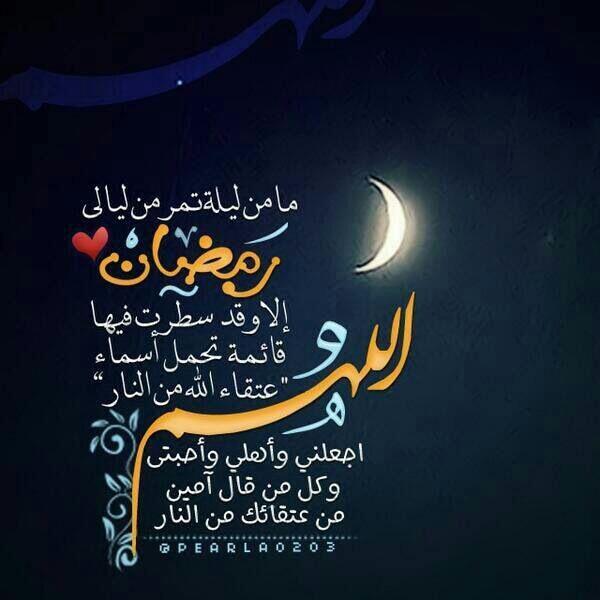 ما من ليلة تمر من ليالى
رمضان
إلا وقد سطرت فيها
قائمة تحمل أسماء
"عتقاء الله من النار“
اللهم
اجعلني وأهلي وأحبتى
وكل من قال آمين
من عتقائك من النار
@PEARLA0203